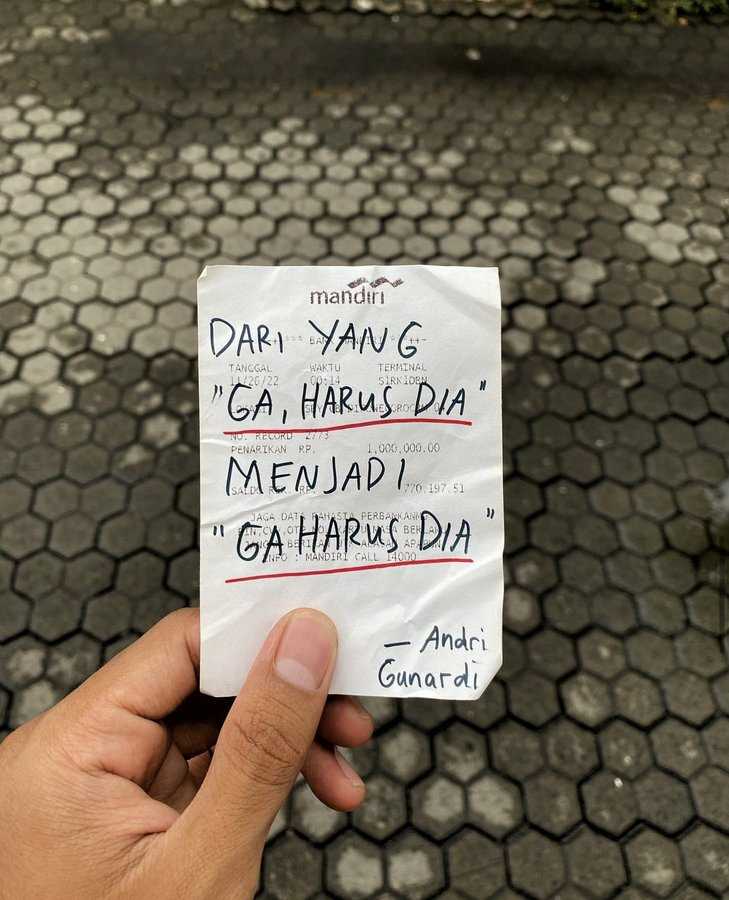 mandiri
DARI YANG
TANGGAL WAKTU TERMINAL
11/26/22 00:14 S1RK1DBN
"GA, HARUS DIA"
NO. RECORD 2773
PENARIKAN RP. 1,000,000.00
MENJADI
770.197.51
JAGA DATA RAHASIA PERBANKAN
"GA HARUS DIA"
INFO : MANDIRI CALL 14000
— Andri
Gunardi